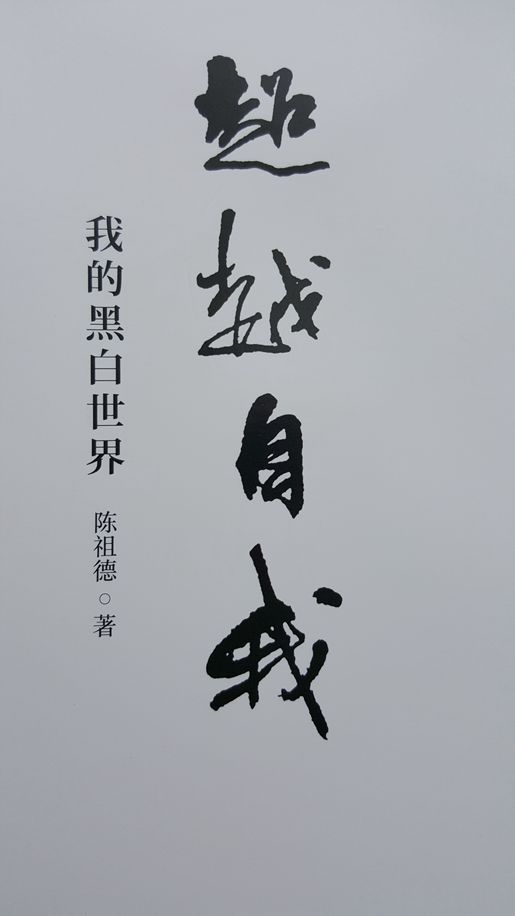 超越自我
我的黑白世界
陈祖德○著